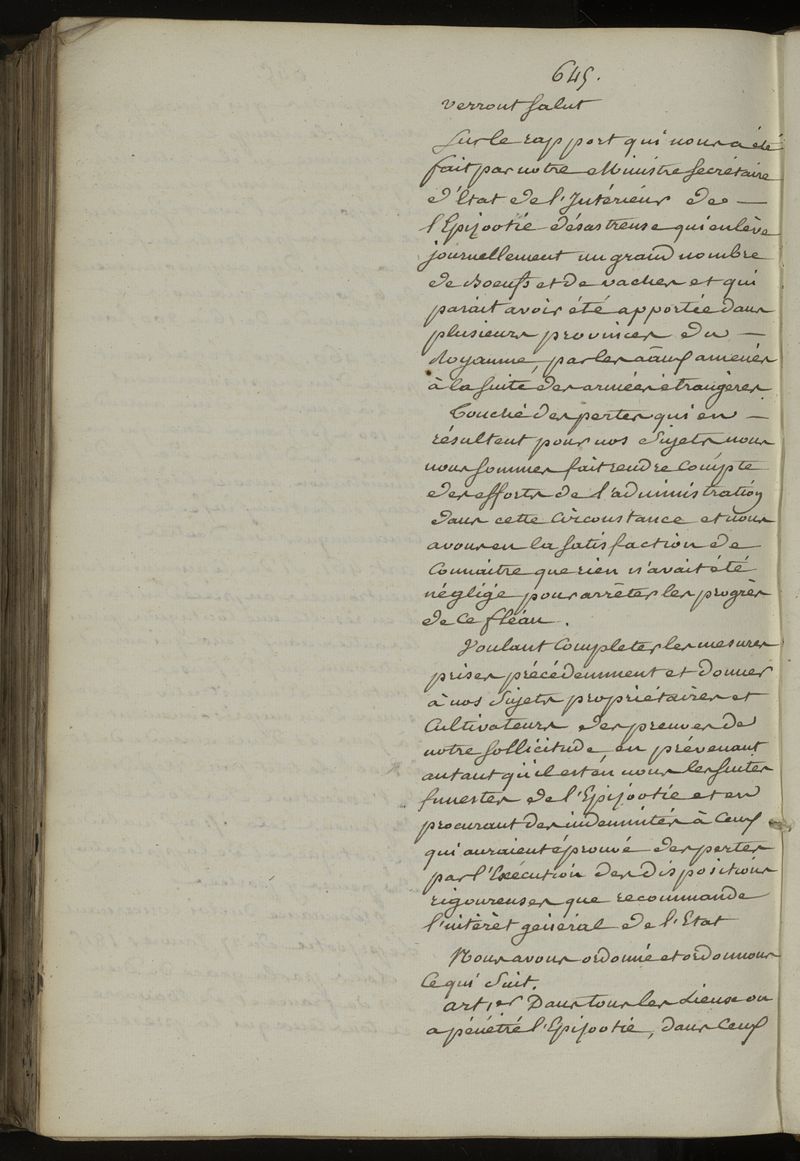 645.
verront Salut
Sur le rapport qui nous a été
fait par notre Ministre Secrétaire
d'Etat de l'Intérieur de —
l'Epizootie désastreuse qui enlève
journellement un grand nombre
de Boeufs et de vaches et qui
parait avoir été apportée dans
plusieurs provinces du —
Royaume, par les amenés
à la suite des armées étrangères.
Touché des pertes qui en —
résultent pour nos Sujets nous
nous sommes fait rendre Compte
des efforts de l'administration
dans cette Circonstance et nous
avons eu la satisfaction de
Connaitre que rien n'avait été
négligé pour arrêter les progrès
de Ce fléau.
Voulant Completer les mesures
prises précédemment et donner
à nos Sujets propriétaires et
Cultivateurs des preuves de
notre Sollicitude, en prévenant
autant qu'il est en nous les suites
funestes de l'Epizootie et en
procurant des indemnités à Ceux
qui auraient éprouvé des pertes
par l'Exécution des dispositions
rigoureuses que recommande
l'intérêt général de l'Etat
Nous avons ordonné et ordonnons
Ce qui Suit.
art. 1er Dans tous les Lieux ou
a pénétré l'Epizootie, dans Ceux